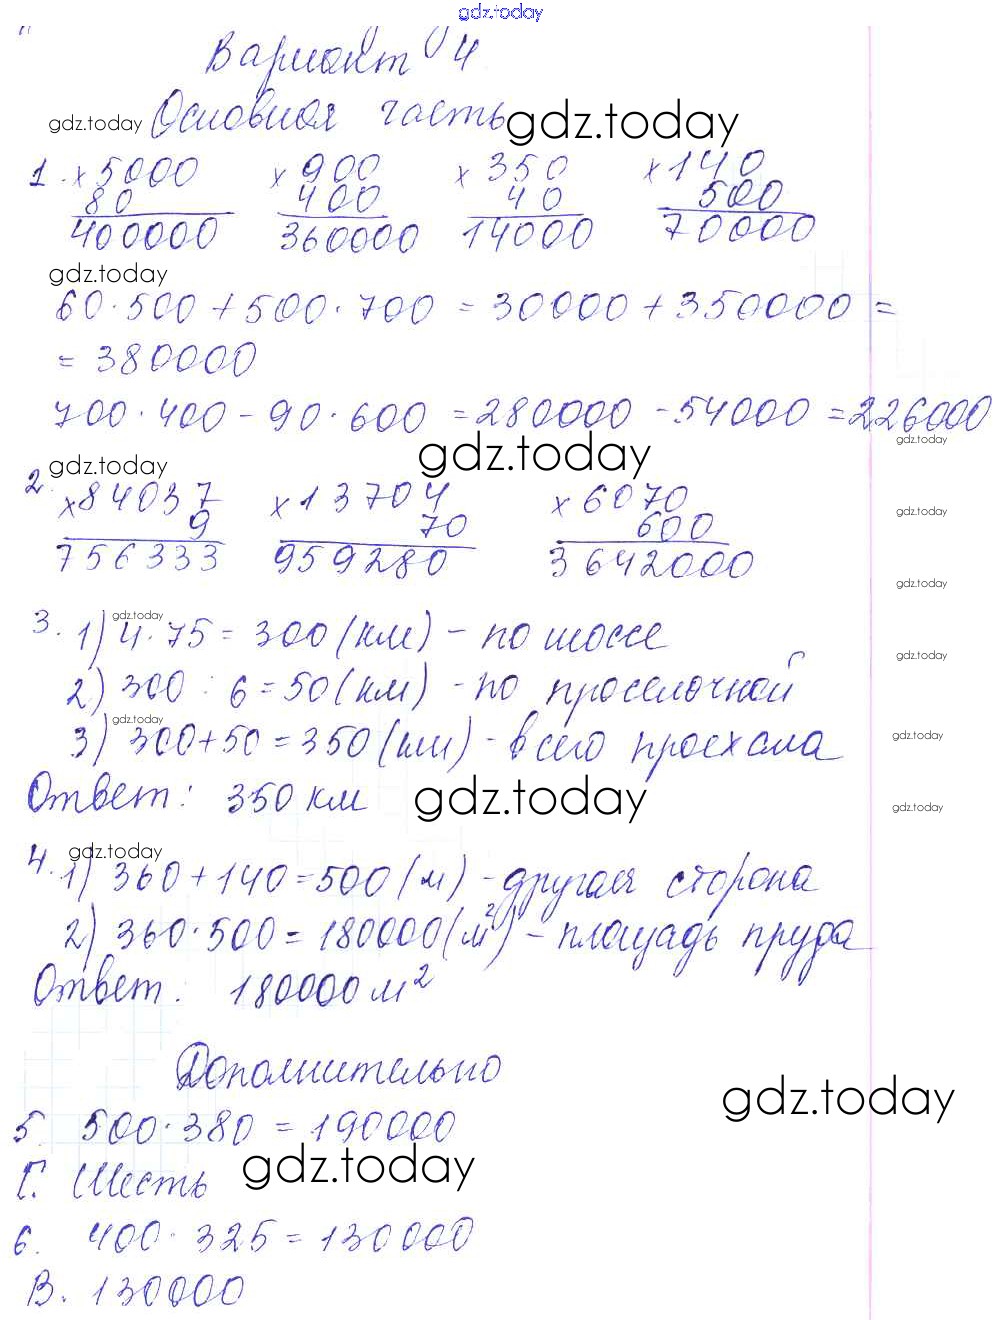 gdz.today
Вариант 4
gdz.today Основная часть gdz.today
1. × 5000 × 900 × 350 × 140
80 400 40 500
400000 360000 14000 70000
gdz.today
60·500+500·700 = 30000+350000 =
= 380000
700·400-90·600 = 280000-54000 = 226000
gdz.today
gdz.today
gdz.today
2. × 84037 × 13704 × 6070
9 70 600
gdz.today
756333 959280 3642000
gdz.today
gdz.today
3. 1) 4·75 = 300 (км) - по шоссе
gdz.today
2) 300 : 6 = 50 (км) - по проселочной
gdz.today
3) 300+50 = 350 (км) - всего проехала
gdz.today
Ответ: 350 км gdz.today
gdz.today
gdz.today
4. 1) 360+140=500 (м) - другая сторона
2) 360·500 = 180000 (м²) - площадь пруда
Ответ: 180000 м²
Дополнительно
gdz.today
5. 500·380 = 190000
gdz.today
Г. Шесть
6. 400·325 = 130000
В. 130000